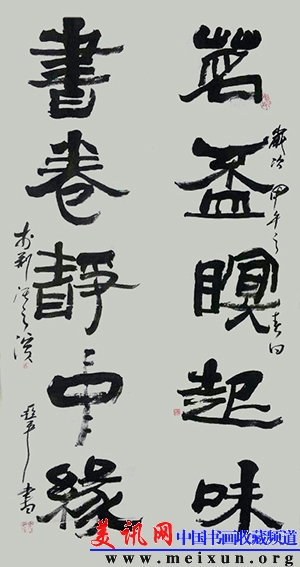 茗盃瞑起味
歲次甲午之春日
書卷靜中緣
之濱
書
美讯网
中国书画收藏频道
www.meixun.org